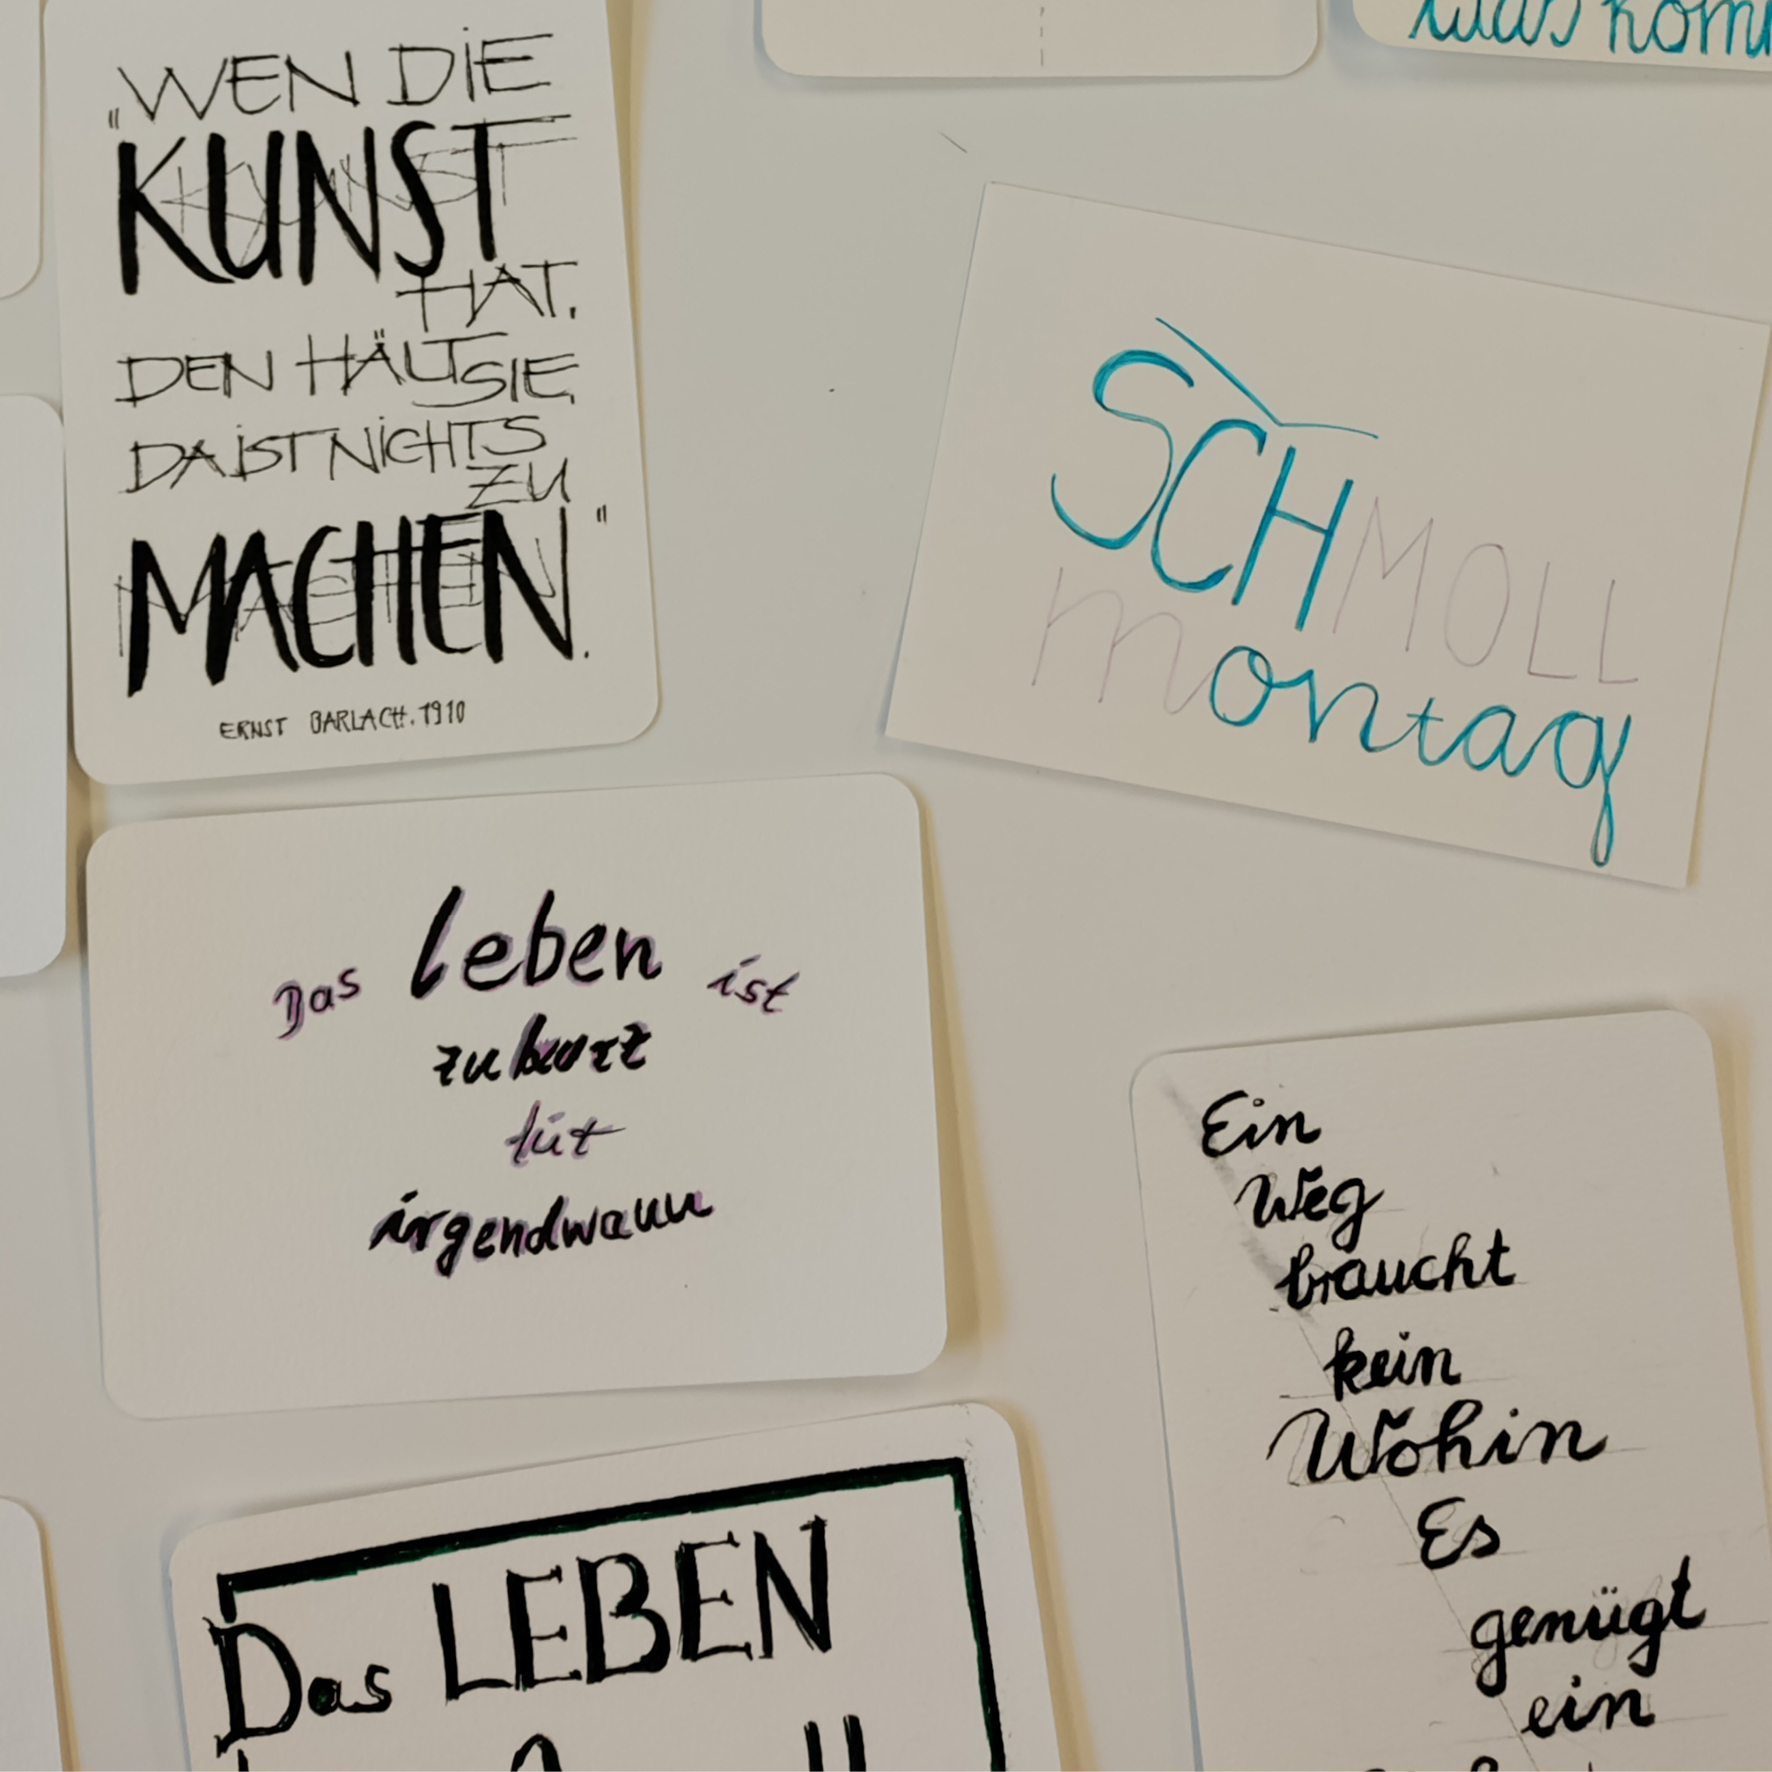 „WEN DIE
KUNST
HAT,
DEN HÄLT SIE,
DA IST NICHTS
ZU
MACHEN."
ERNST BARLACH. 1910
was
SCHMOLL
montag
Das leben ist
zu kurz
für
irgendwann
Das LEBEN
Ein
Weg
braucht
kein
Wohin
Es
genügt
ein